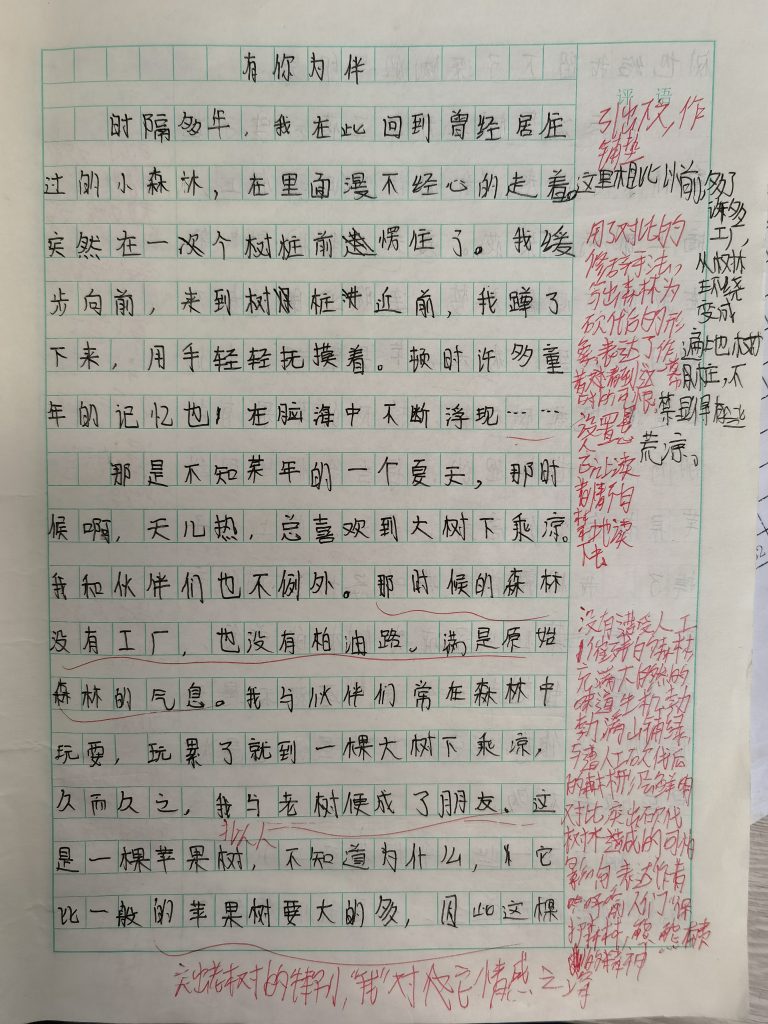 有你为伴
时隔多年，我在此回到曾经居住
过的小森林，在里面漫不经心的走着。
突然在一个树桩前愣住了。我缓
步向前，来到树桩近前，我蹲了
下来，用手轻轻抚摸着。顿时许多童
年的记忆也在脑海中不断浮现……
那是不知某年的一个夏天，那时
候啊，天儿热，总喜欢到大树下乘凉。
我和伙伴们也不例外。那时候的森林
没有工厂，也没有柏油路。满是原始
森林的气息。我与伙伴们常在森林中
玩耍，玩累了就到一棵大树下乘凉，
久而久之，我与老树便成了朋友。这
是一棵苹果树，不知道为什么，它
比一般的苹果树要大的多，因此这棵
评语
引出下文，作
铺垫
这里相比以前，多了
许多
工厂，
从树林
环绕
变成
遍地树
桩，不
禁显得
荒凉。
用了对比的
修辞手法，
写出森林为
砍伐后的形
象，表达了作
者看到这一幕
设置悬
念让读
者情不自
禁地读
下去
没有遭受人工
的森林
充满大自然的
味道生机勃
勃，满山铺绿，
与遭人工砍伐后
的形成鲜明
对比突出砍伐
树林造成的可怕
影响表达作者
呼吁人们保
护森林，
拟人
突出老树的特别，“我”对它情感之深